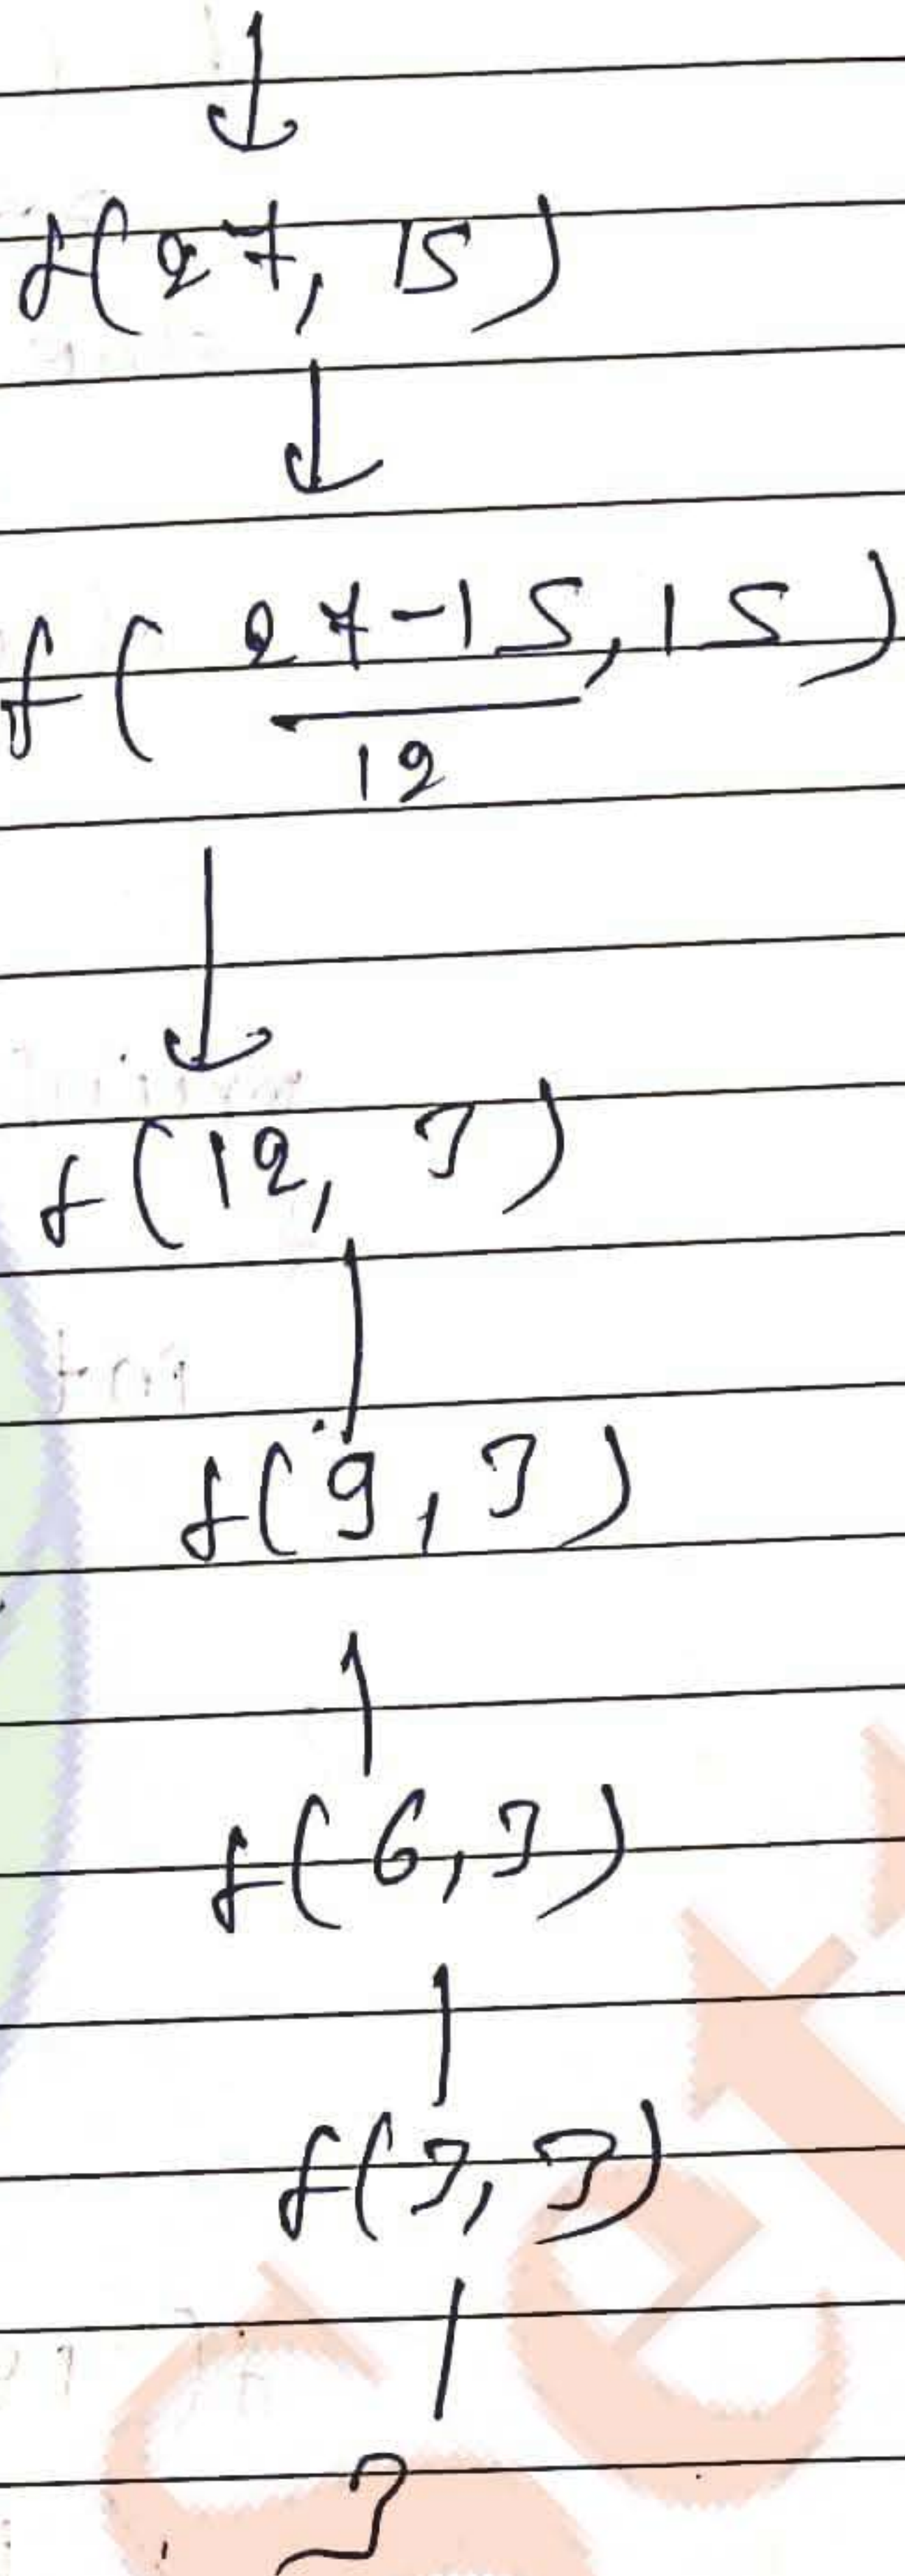 ↓
f(27, 15)
↓
f(27-15, 15)
12
↓
f(12, 3)
|
f(9, 3)
|
f(6, 3)
|
f(3, 3)
|
3